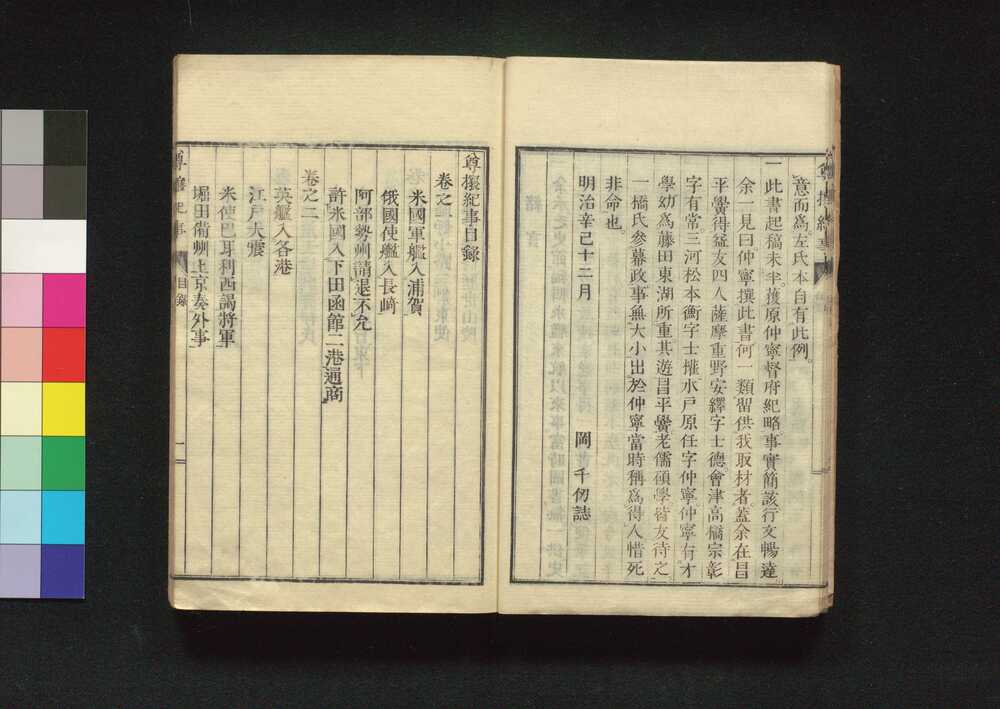 意而爲、左氏本自有此例。
一此書起稿未半。獲原仲寧督府紀略事實簡該行文暢達。
余一見曰仲寧撰此書何一類習供我取材者。蓋余在昌
平黌得益友四人薩摩重野安繹字士德會津高橋宗彰
字有常。三河松本衡字士權水戸原任字仲寧仲寧有才
學幼爲藤田東湖所重其遊昌平黌老儒碩學皆友待之。
一橋氏參幕政事無大小出於仲寧當時稱爲得人惜死
非命也。
明治辛己十二月
岡千仞誌
尊攘紀事目錄
卷之一
米國軍艦入浦賀
俄國使艦入長崎
阿部勢州請退不允
許米國入下田函館二港通商
卷之二
英艦入各港
江戸大震
米使巴耳利西謁將軍
堀田備州上京奏外事
尊攘紀事
目錄
一